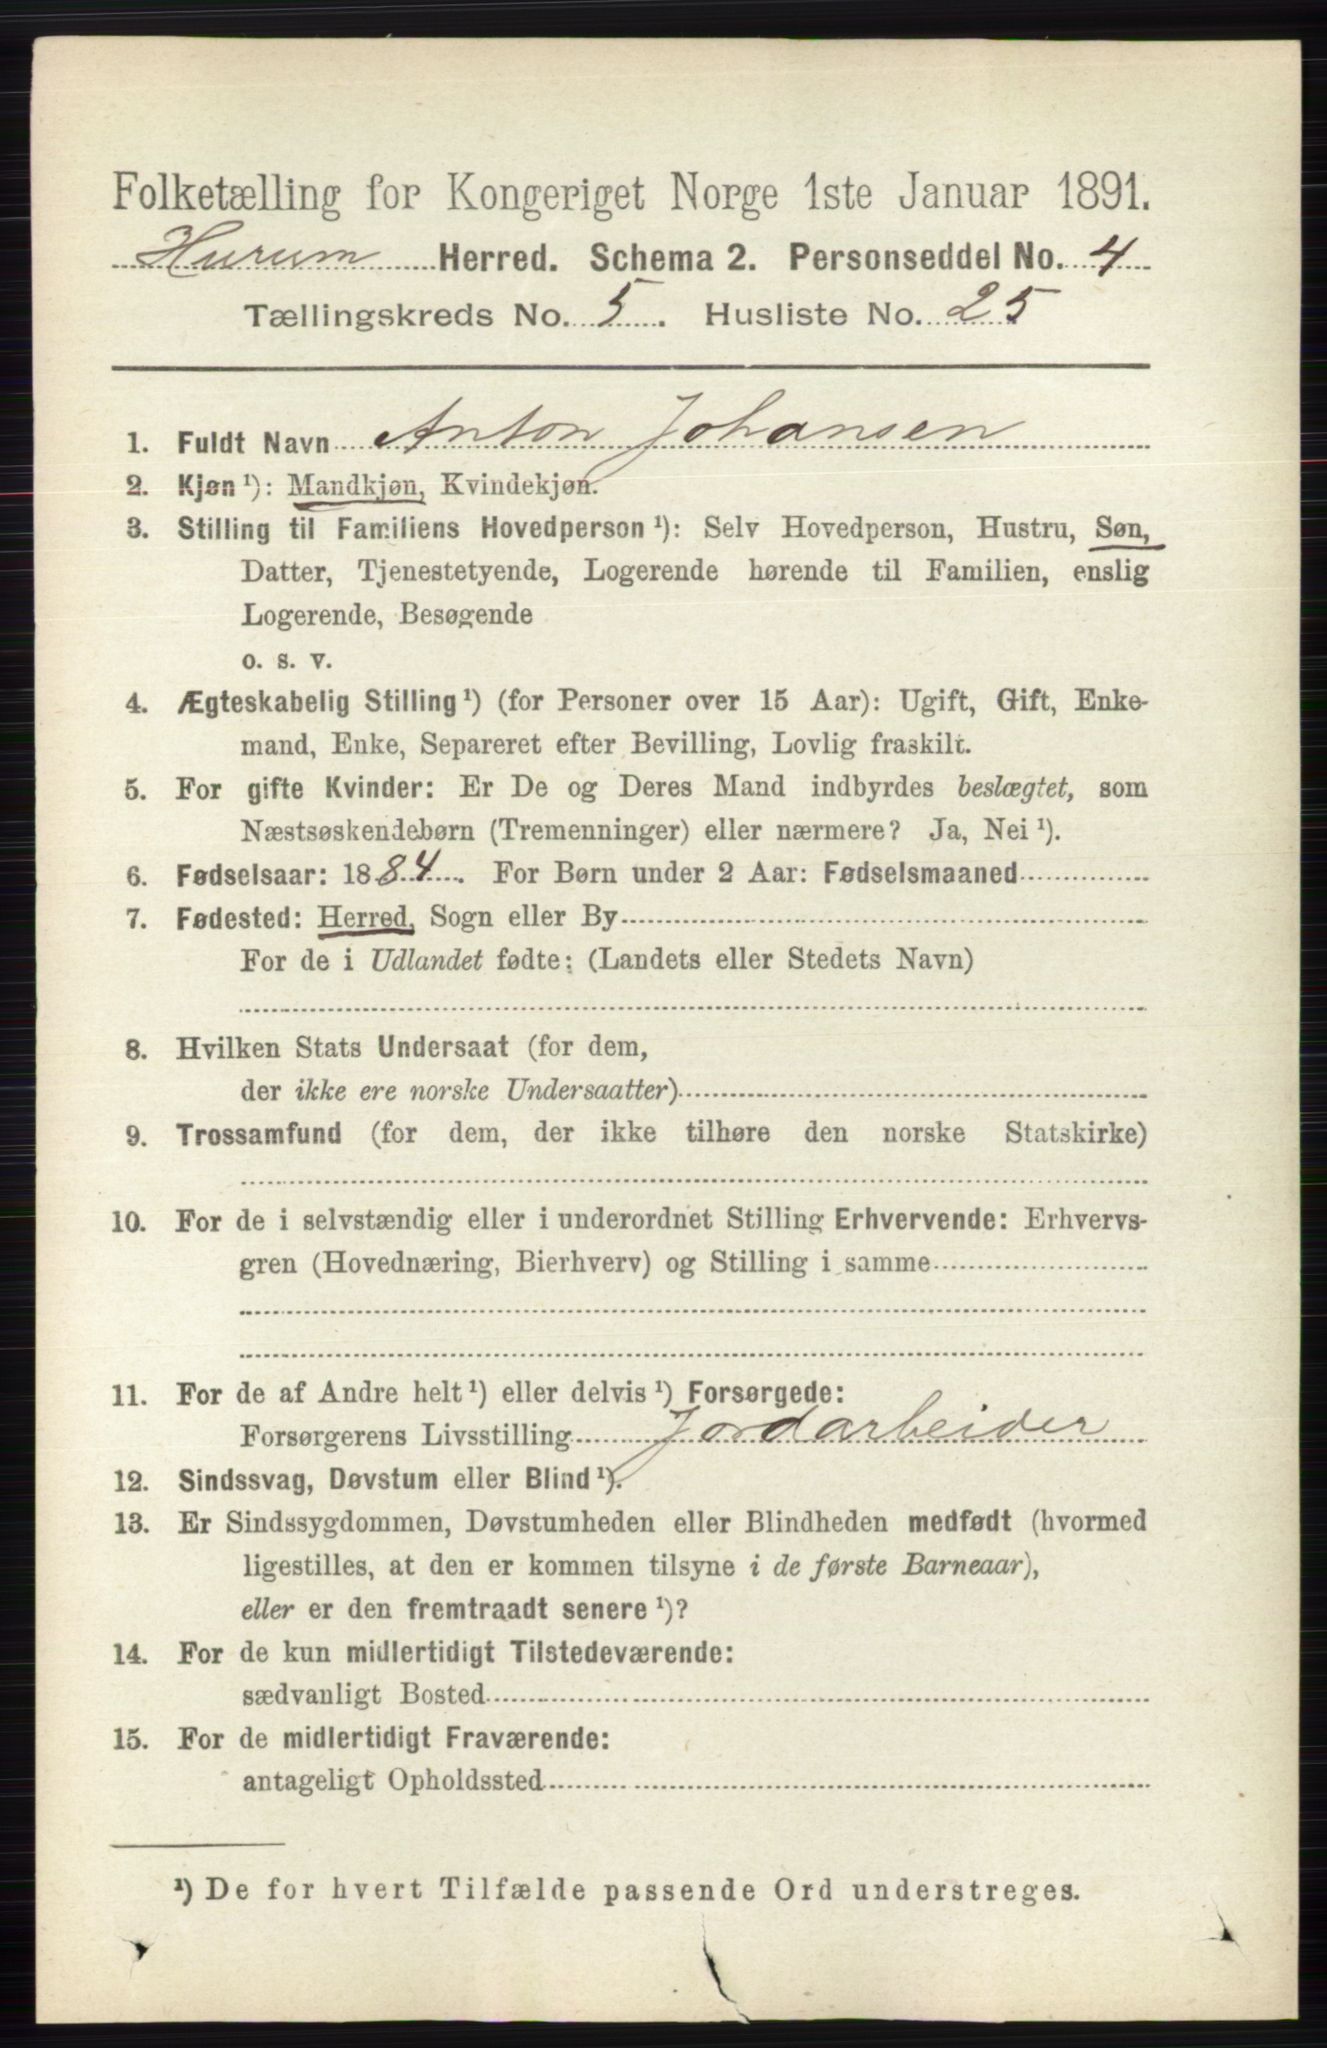 Folketælling for Kongeriget Norge 1ste Januar 1891.
Hurum Herred. Schema 2. Personseddel No. 4
Tællingskreds No. 5. Husliste No. 25
1. Fuldt Navn Anton Johansen
2. Kjøn ¹): Mandkjøn, Kvindekjøn.
3. Stilling til Familiens Hovedperson ¹): Selv Hovedperson, Hustru, Søn,
Datter, Tjenestetyende, Logerende hørende til Familien, enslig
Logerende, Besøgende
o. s. v.
4. Ægteskabelig Stilling ¹) (for Personer over 15 Aar): Ugift, Gift, Enke-
mand, Enke, Separeret efter Bevilling, Lovlig fraskilt.
5. For gifte Kvinder: Er De og Deres Mand indbyrdes beslægtet, som
Næstsøskendebørn (Tremenninger) eller nærmere? Ja, Nei ¹).
6. Fødselsaar: 1884. For Børn under 2 Aar: Fødselsmaaned
7. Fødested: Herred, Sogn eller By
For de i Udlandet fødte: (Landets eller Stedets Navn)
8. Hvilken Stats Undersaat (for dem,
der ikke ere norske Undersaatter)
9. Trossamfund (for dem, der ikke tilhøre den norske Statskirke)
10. For de i selvstændig eller i underordnet Stilling Erhvervende: Erhvervs-
gren (Hovednæring, Bierhverv) og Stilling i samme
11. For de af Andre helt ¹) eller delvis ¹) Forsørgede:
Forsørgerens Livsstilling Jordarbeider
12. Sindssvag, Døvstum eller Blind ¹).
13. Er Sindssygdommen, Døvstumheden eller Blindheden medfødt (hvormed
ligestilles, at den er kommen tilsyne i de første Barneaar),
eller er den fremtraadt senere ¹)?
14. For de kun midlertidigt Tilstedeværende:
sædvanligt Bosted
15. For de midlertidigt Fraværende:
antageligt Opholdssted
¹) De for hvert Tilfælde passende Ord understreges.